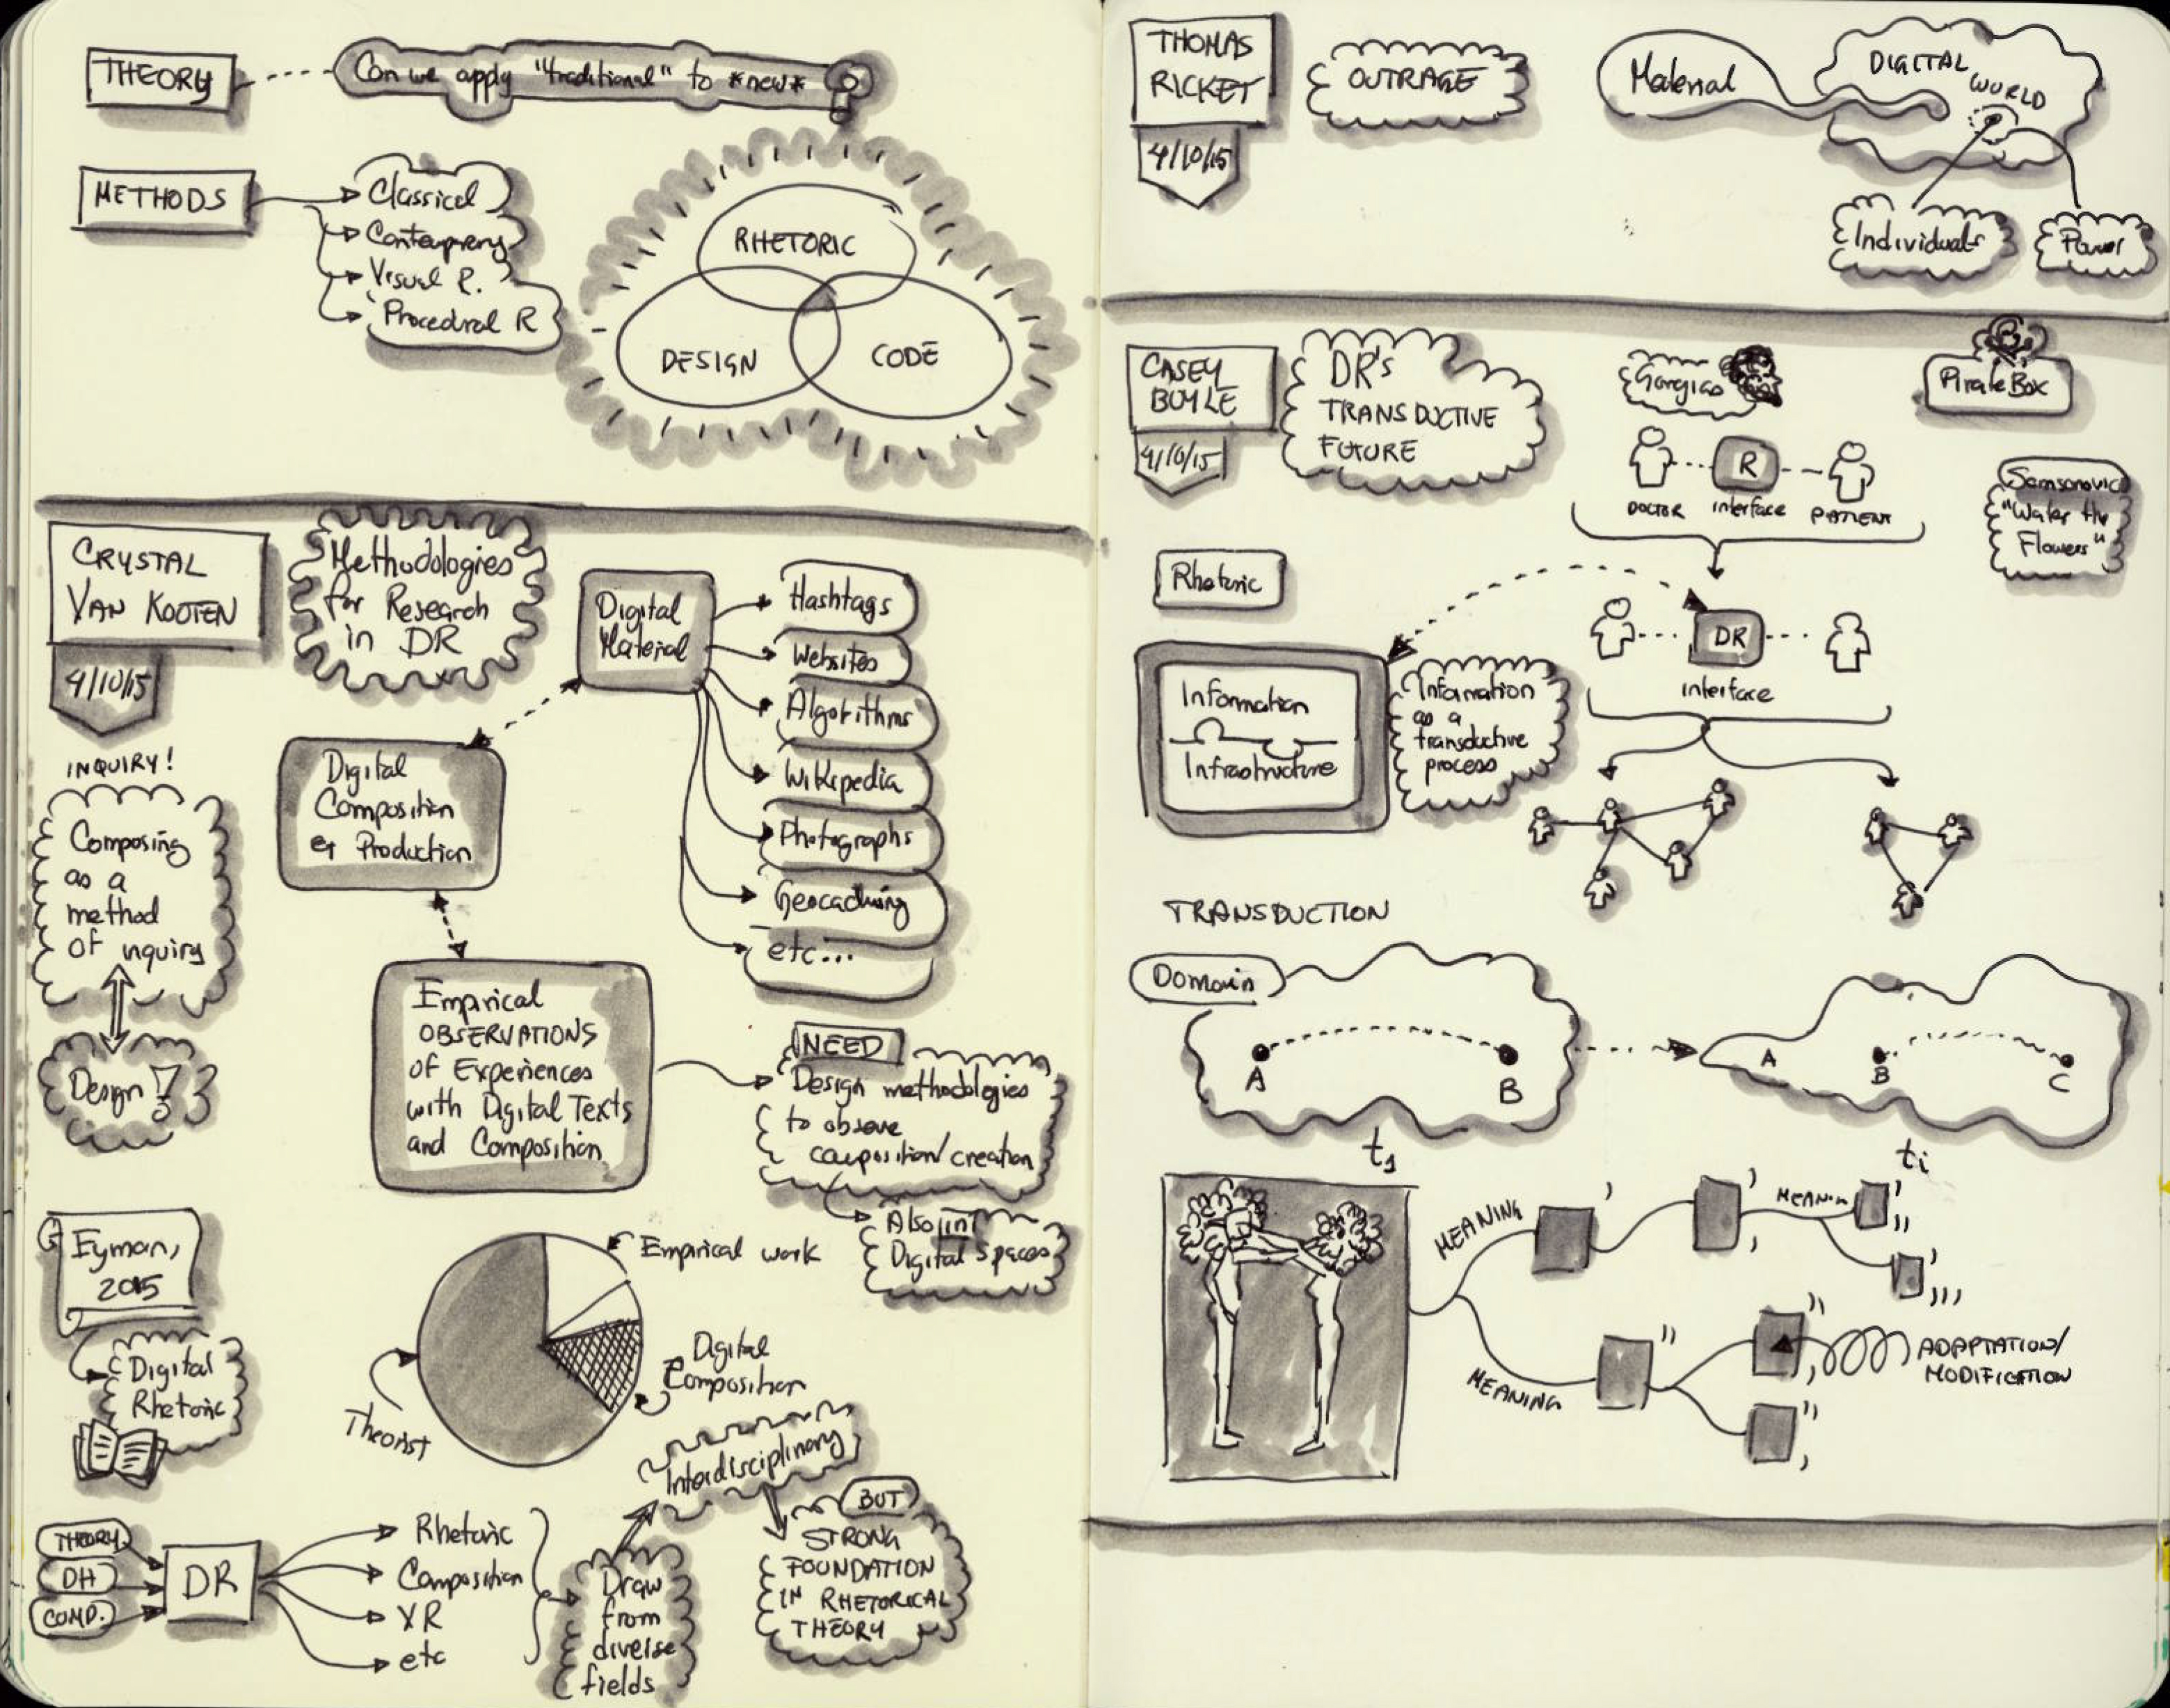 THEORY
Can we apply "traditional" to *new*?
METHODS
Classical
Contemprery
Visual R.
Procedural R
RHETORIC
DESIGN
CODE
CRYSTAL
VAN KOOTEN
4/10/15
Methodologies
for Research
in DR
Digital
Material
Hashtags
Websites
Algorithms
Wikipedia
Photographs
Geocaching
etc...
INQUIRY!
Composing
as a
method
of inquiry
Design
Digital
Composition
& Production
Empirical
OBSERVATIONS
of Experiences
with Digital Texts
and Composition
NEED
Design methodologies
to observe
composition/creation
Also in
Digital spaces
Eyman,
2015
Digital
Rhetoric
Empirical work
Digital
Composition
Theorist
THEORY
DH
COMP.
DR
Rhetoric
Composition
VR
etc
Draw
from
diverse
fields
Interdisciplinary
BUT
STRONG
FOUNDATION
IN RHETORICAL
THEORY
THOMAS
RICKET
4/10/15
OUTRAGE
Material
DIGITAL
WORLD
Individuals
Power
CASEY
BOYLE
4/10/15
DR's
TRANSDUCTIVE
FUTURE
Gorgias
PirateBox
R
DOCTOR
interface
PATIENT
Samsonovic
"Water the
Flowers"
Rhetoric
DR
interface
Information
Infrastructure
Information
as a
transductive
process
TRANSDUCTION
Domain
A
B
t1
A
B
C
ti
MEANING
MEANIN
MEANING
ADAPTATION/
MODIFICATION